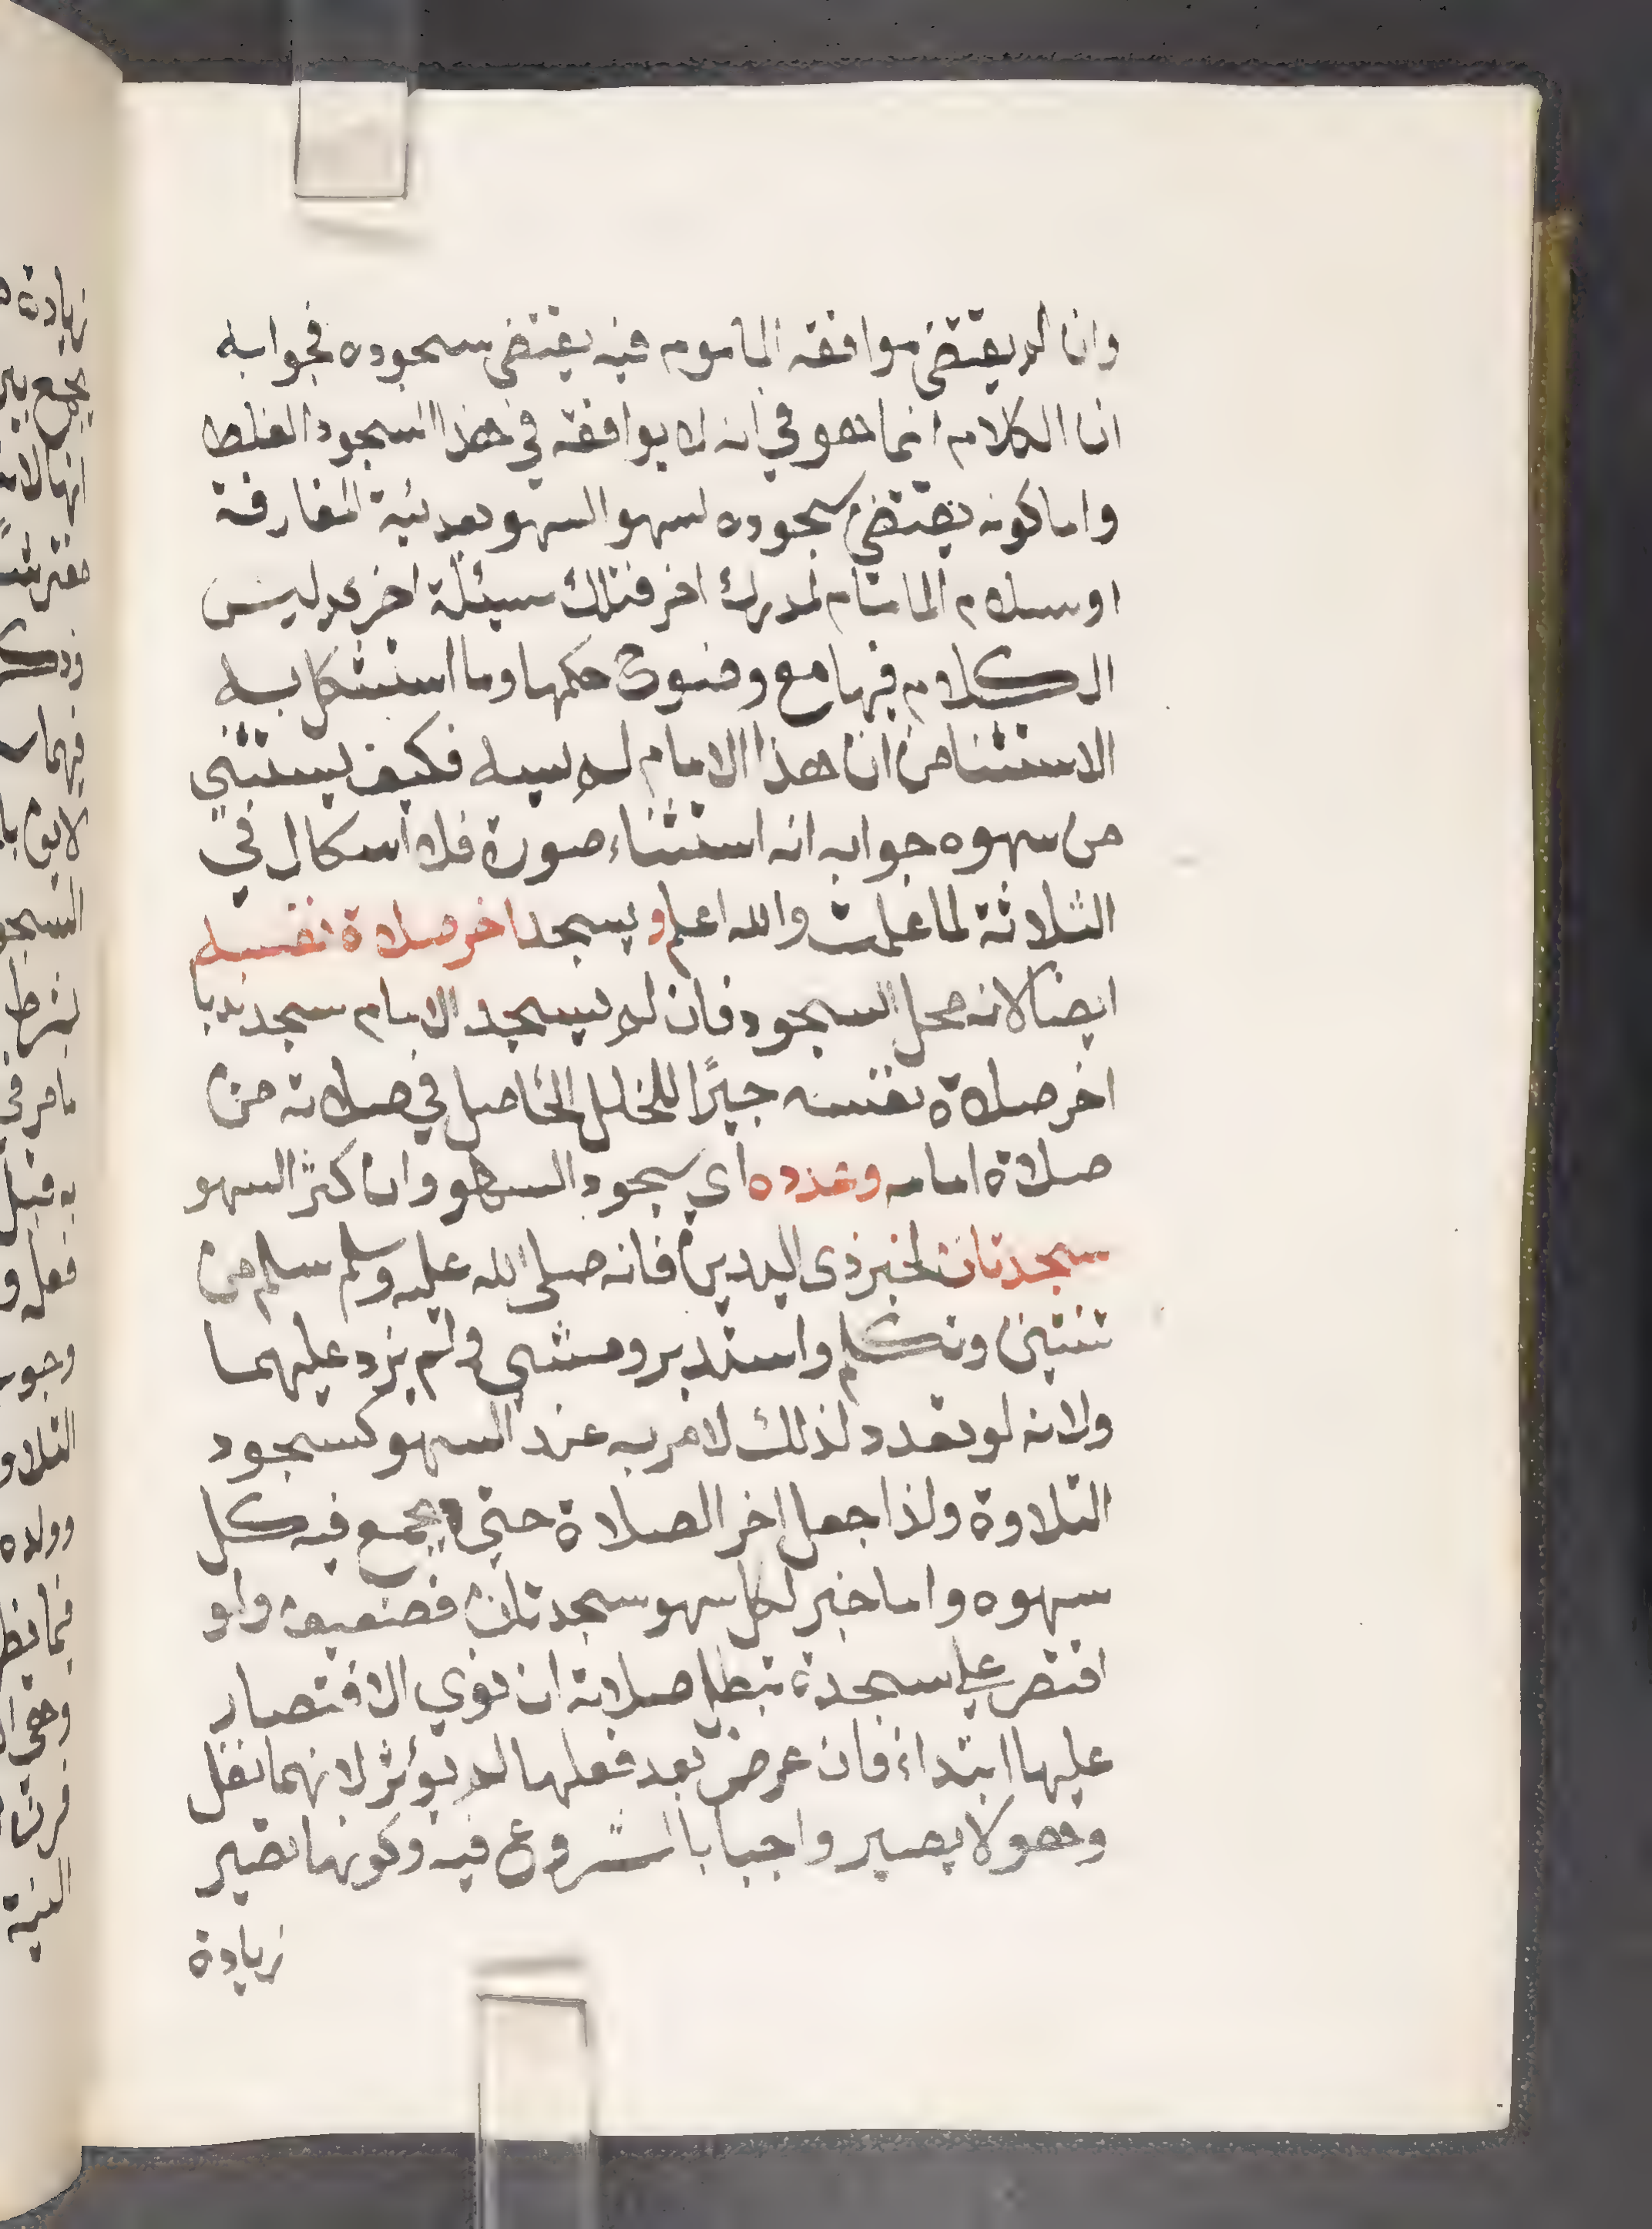 وان لم يقتضي موافقه الماموم فيه يقتضي سجوده فجوابه
ان الكلام انما هو في انه لا يوافقه في هذا السجود الغلط
واما كونه يقتضي سجوده لسهو السهو بعد نية المفارقة
او سلام الامام لمدرك اخر فتلك مسئلة اخرى ليس
الكلام فيها مع وضوح حكمها وما استشكل به
الاستثنا من ان هذا الامام لم يسه فكيف يستثني
من سهوه جوابه انه استثناء صورة فلا اشكال في
الثلاثة لما علمت والله اعلم ويسجد اخر صلاة نفسه
ايضا لانه محل السجود فان لم يسجد الامام سجد ندبا
اخر صلاة نفسه جبرًا للخلل الحاصل في صلاته من
صلاة امامه وعدده اي سجود السهو وان كثر السهو
سجدتان لخبر ذى اليدين فانه صلى الله عليه وسلم سلم من
ثنتين وتكلم واستدبر ومشى ولم يزد عليهما
ولانه لو تعدد لذلك لامر به عند السهو كسجود
التلاوة ولذا جعل اخر الصلاة حتى يجمع فيه كل
سهوه واما خبر لكل سهو سجدتان فضعيف ولو
اقتصر على سجدة تبطل صلاته ان نوي الاقتصار
عليها ابتداء فان عرض بعد فعلها لم يؤثر لانهما نفل
وهو لا يصير واجبا بالشروع فيه وكونها تصير
زيادة